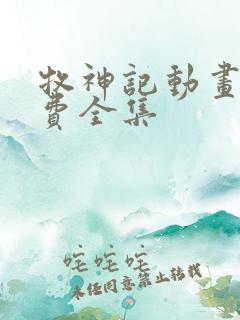 牧神記動畫
費全集
咤咤咤
未经同意禁止转载